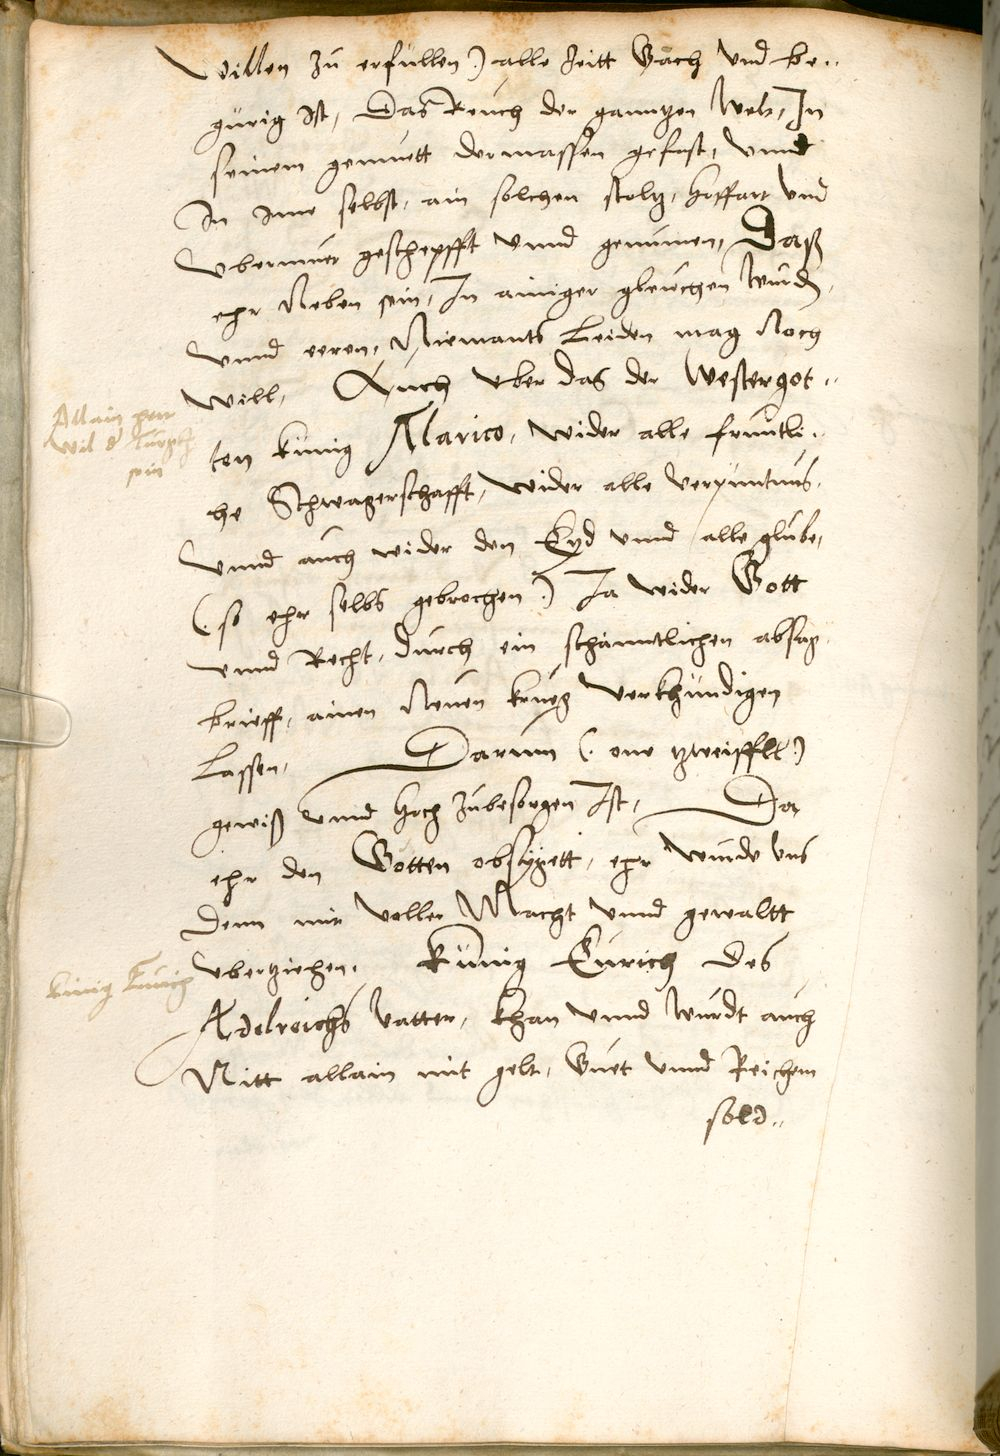 Willen zu erfüllen) alle Zeitt Gäch vnd be„
gürig Ist, Das Reüch der ganntzen Welt, In
seinem gemuett dermassen gefast, vnnd
In Ime selbst, ain solchen stoltz, hoffart vnd
vbermuet geschepfft vnnd genumen, Daß
ehr Neben sein, In ainiger gleichen Würd,
vnnd eeren, Niemants Leiden mag Noch
will, Auch vber das der Westergot„
ten künig Alarico, wider alle freuntli„
che Schwagerschafft, wider alle verpüntnus,
vnnd auch wider den Eyd vnnd alle glübe,
(so ehr selbs gebrochen) Ja wider Gott
vnnd Recht, durch ein schanntlichen absag
brieff, ainen Neüen krüeg verkhündigen
Lassen, Darum (one tzweiffll)
gewiß vnnd hoch zübesorgen Ist, Da
ehr den Gotten obsygett, ehr würde vns
denn mit voller Macht vnnd gewaltt
vbertziehen. Künig Eürich des
Adelreichs vatter, khan vnnd würdt auch
Nitt allain mit gelt, Guet vnnd Reichem
sold„
Allain herr
wil d türgk
sein
künig Eürich